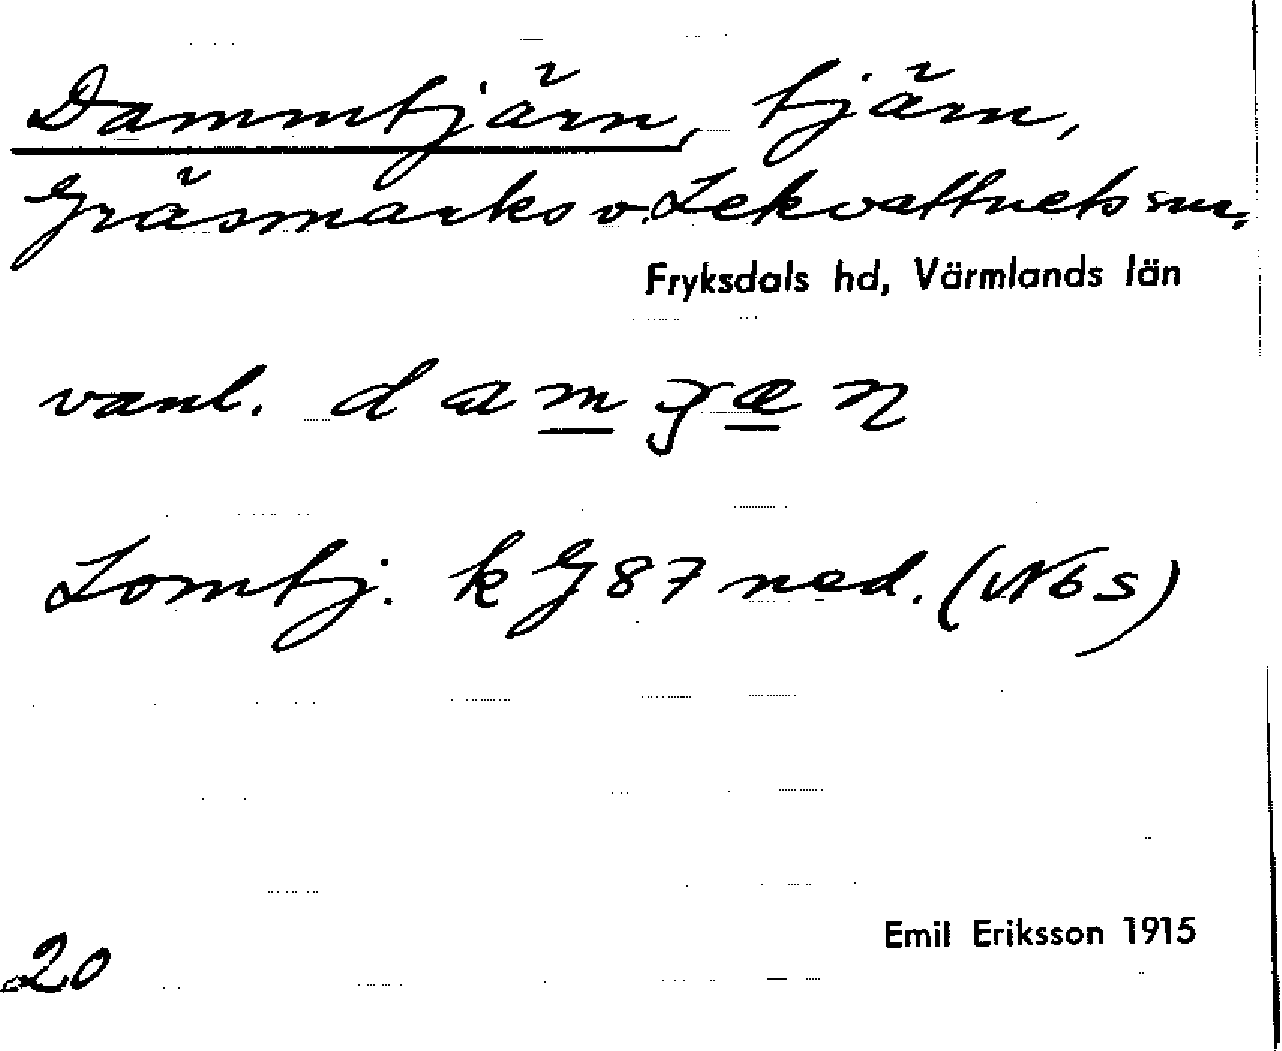 Dammtjärn, tjärn,
Gräsmarks o. Lekvattnets snr,
Fryksdals hd, Värmlands län
vanl.
Lomtj. k G 87 ned. (N6s)
Emil Eriksson 1915
20